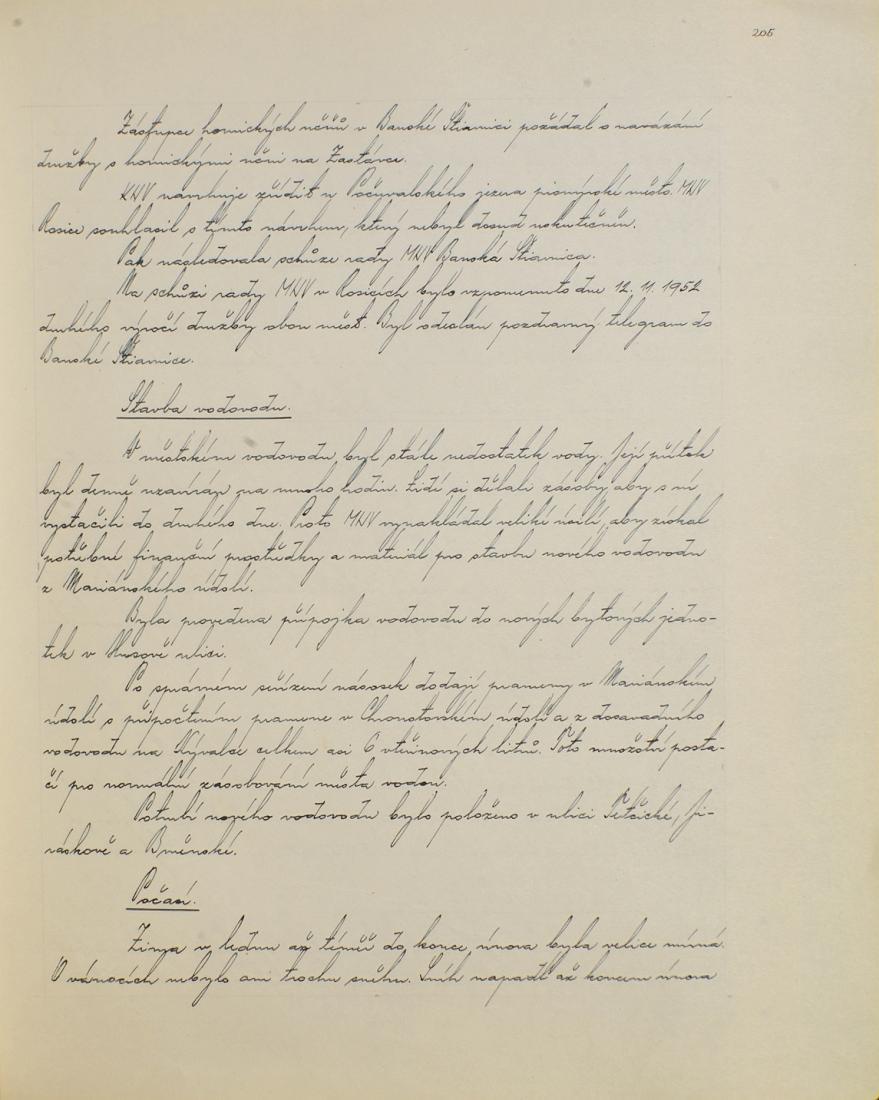 205
Zástupce hornických učňů v Banské Štiavnici požádal o navázání
družby s hornickými učni na Zastávce.
KNV navrhuje zřídit u Počúvalského jezera pionýrské město. MNV
Rosice souhlasil s tímto návrhem, který nebyl dosud uskutečněn.
Pak následovala schůze rady MNV Banská Štiavnica.
Na schůzi rady MNV v Rosicích bylo vzpomenuto dne 12. 11. 1952
druhého výročí družby obou měst. Byl odeslán pozdravný telegram do
Banské Štiavnice.
Stavba vodovodu.
V městském vodovodu byl stále nedostatek vody. Její přítok
byl denně uzavírán na mnoho hodin. Lidé si dělali zásoby, aby s ní
vystačili do druhého dne. Proto MNV vynakládal veliké úsilí, aby získal
potřebné finanční prostředky a materiál pro stavbu nového vodovodu
z Mariánského údolí.
Byla provedena přípojka vodovodu do nových bytových jedno-
tek v Husově ulici.
Po správném seřízení násosek dodají prameny v Mariánském
údolí s připočtením pramene v Chroustovském údolí a z dosavadního
vodovodu na Kývalce celkem asi 6 vteřinových litrů. Toto množství posta-
čí pro normální zásobování města vodou.
Potrubí nového vodovodu bylo položeno v ulici Tetčické, Ji-
ráskově a Brněnské.
Počasí.
Zima v lednu až téměř do konce února byla velice mírná.
O vánocích nebylo ani trochu sněhu. Sníh napadl až koncem února